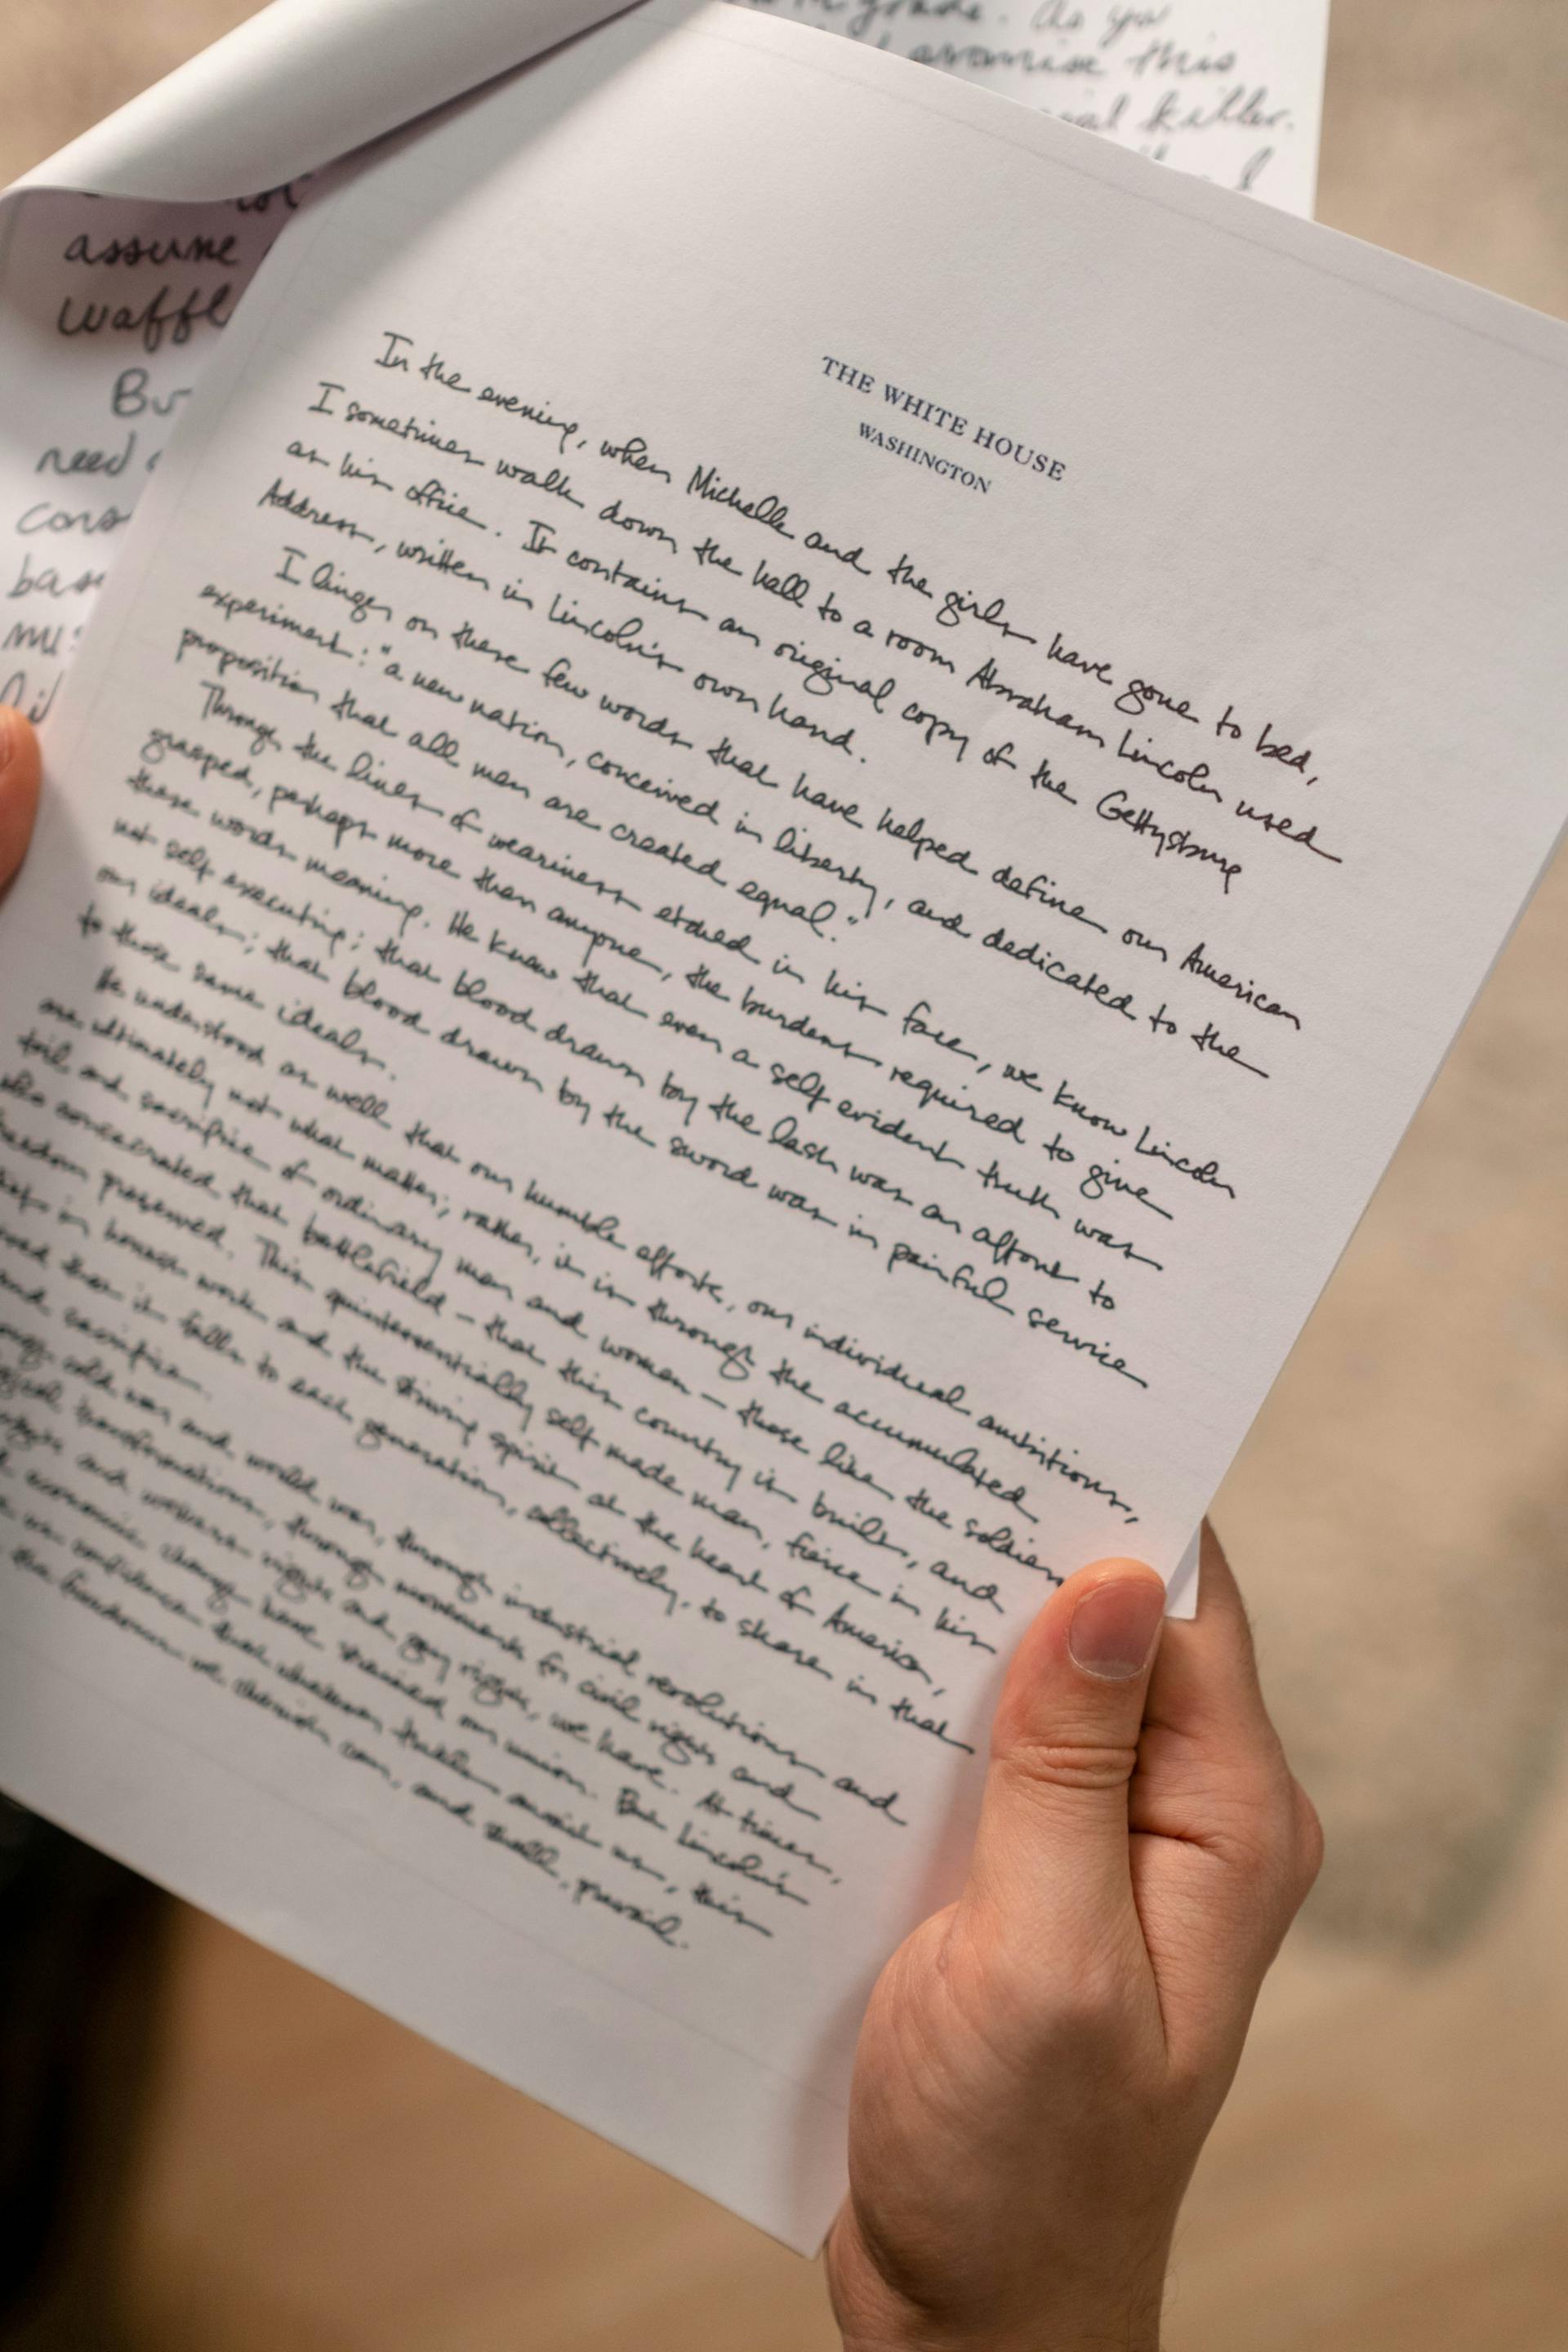 grade. As you
promise this
killer.
I
assume
waffl
Bu
need
cons
bas
THE WHITE HOUSE
WASHINGTON
In the evening, when Michelle and the girls have gone to bed,
I sometimes walk down the hall to a room Abraham Lincoln used
as his office. It contains an original copy of the Gettysburg
Address, written in Lincoln's own hand.
I linger on these few words that have helped define our American
experiment: "a new nation, conceived in liberty, and dedicated to the
proposition that all men are created equal."
Through the lines of weariness etched in his face, we know Lincoln
grasped, perhaps more than anyone, the burdens required to give
these words meaning. He knew that even a self evident truth was
not self executing; that blood drawn by the lash was an affront to
our ideals; that blood drawn by the sword was in painful service
to those same ideals.
He understood as well that our humble efforts, our individual ambitions,
are ultimately not what matter; rather, it is through the accumulated
toil and sacrifice of ordinary men and women - those like the soldiers
who consecrated that battlefield - that this country is built, and
freedom preserved. This quintessentially self made man, fierce in his
in honest work and the striving spirit at the heart of America,
that it falls to each generation, collectively, to share in that
and sacrifice.
cold war and world war, through industrial revolutions and
transformations, through movements for civil rights and
and women's rights and gay rights, we have. At times,
economic change have strained our union. But Lincoln's
confidence that whatever trials await us, this
the freedom we cherish can, and shall, prevail.